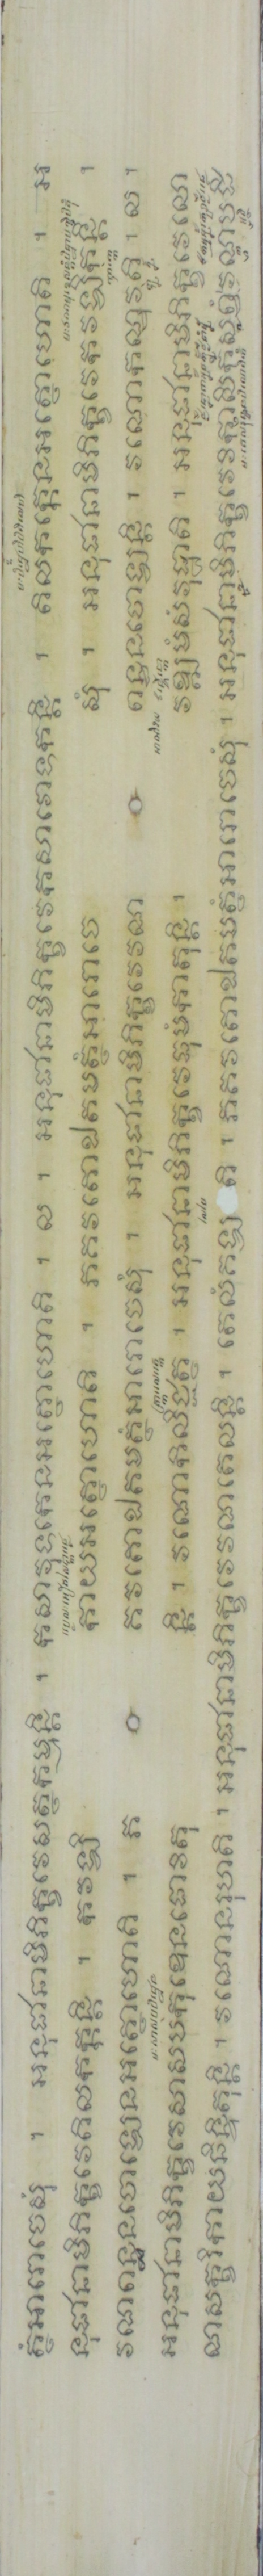 ត្ថំអារោចេសុំ ។ អនុជានាមិភិក្ខវេសត្ថកម្មន្តិ ។ កសាវុទកេនអត្ថោហោតិ ។ ល ។ អនុជានាមិភិក្ខវេកសាវោទកន្តិ ។ តិលកក្កេនអត្ថោហោតិ ។ អ
នុជានាមិភិក្ខវេតិលកក្កន្តិ ។ កវឡិ កាយអត្ថោហោតិ ។ ភគវតោឯតមត្ថំអារោចេ សុំ ។ អនុជានាមិភិក្ខវេកវឡិកន្តិ ។
វណពន្ធនចោឡេនអត្ថោហោតិ ។ ភ គវតោឯតមត្ថំអារោចេសុំ ។ អនុជានាមិភិក្ខវេវណ ពន្ធនចោឡន្តិ ។ វណោកណ្ឌុវតិ ។ ល ។
អនុជានាមិភិក្ខវេសាសបកុឌេនផោសិតុ ន្តិ ។ វណោកិលិជ្ជិត្ថ ។ អនុជានាមិភិក្ខវេធុមំកាតុន្តិ ។ វឌ្ឍមំសំវុដ្ឋាតិ ។ អនុជានាមិភិក្ខវេលោ
ណសក្ខរិកាយឆិន្ទិតុន្តិ ។ វណោនរុហតិ ។ អនុជានាមិភិក្ខវេវណតេលន្តិ ។ តេលំគឡ តិ ។ ភគវតោឯតមត្ថំអារោចេសុំ ។ អនុជានាមិភិក្ខវេវិកាសិកំសព្ពំវណ